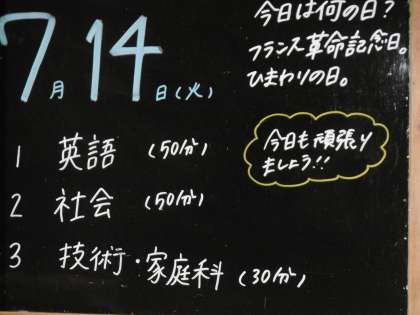 7月14日(火)
今日は何の日?
フランス革命記念日。
ひまわりの日。
1 英語 (50分)
2 社会 (50分)
3 技術・家庭科 (30分)
今日も頑張り
ましょう!!